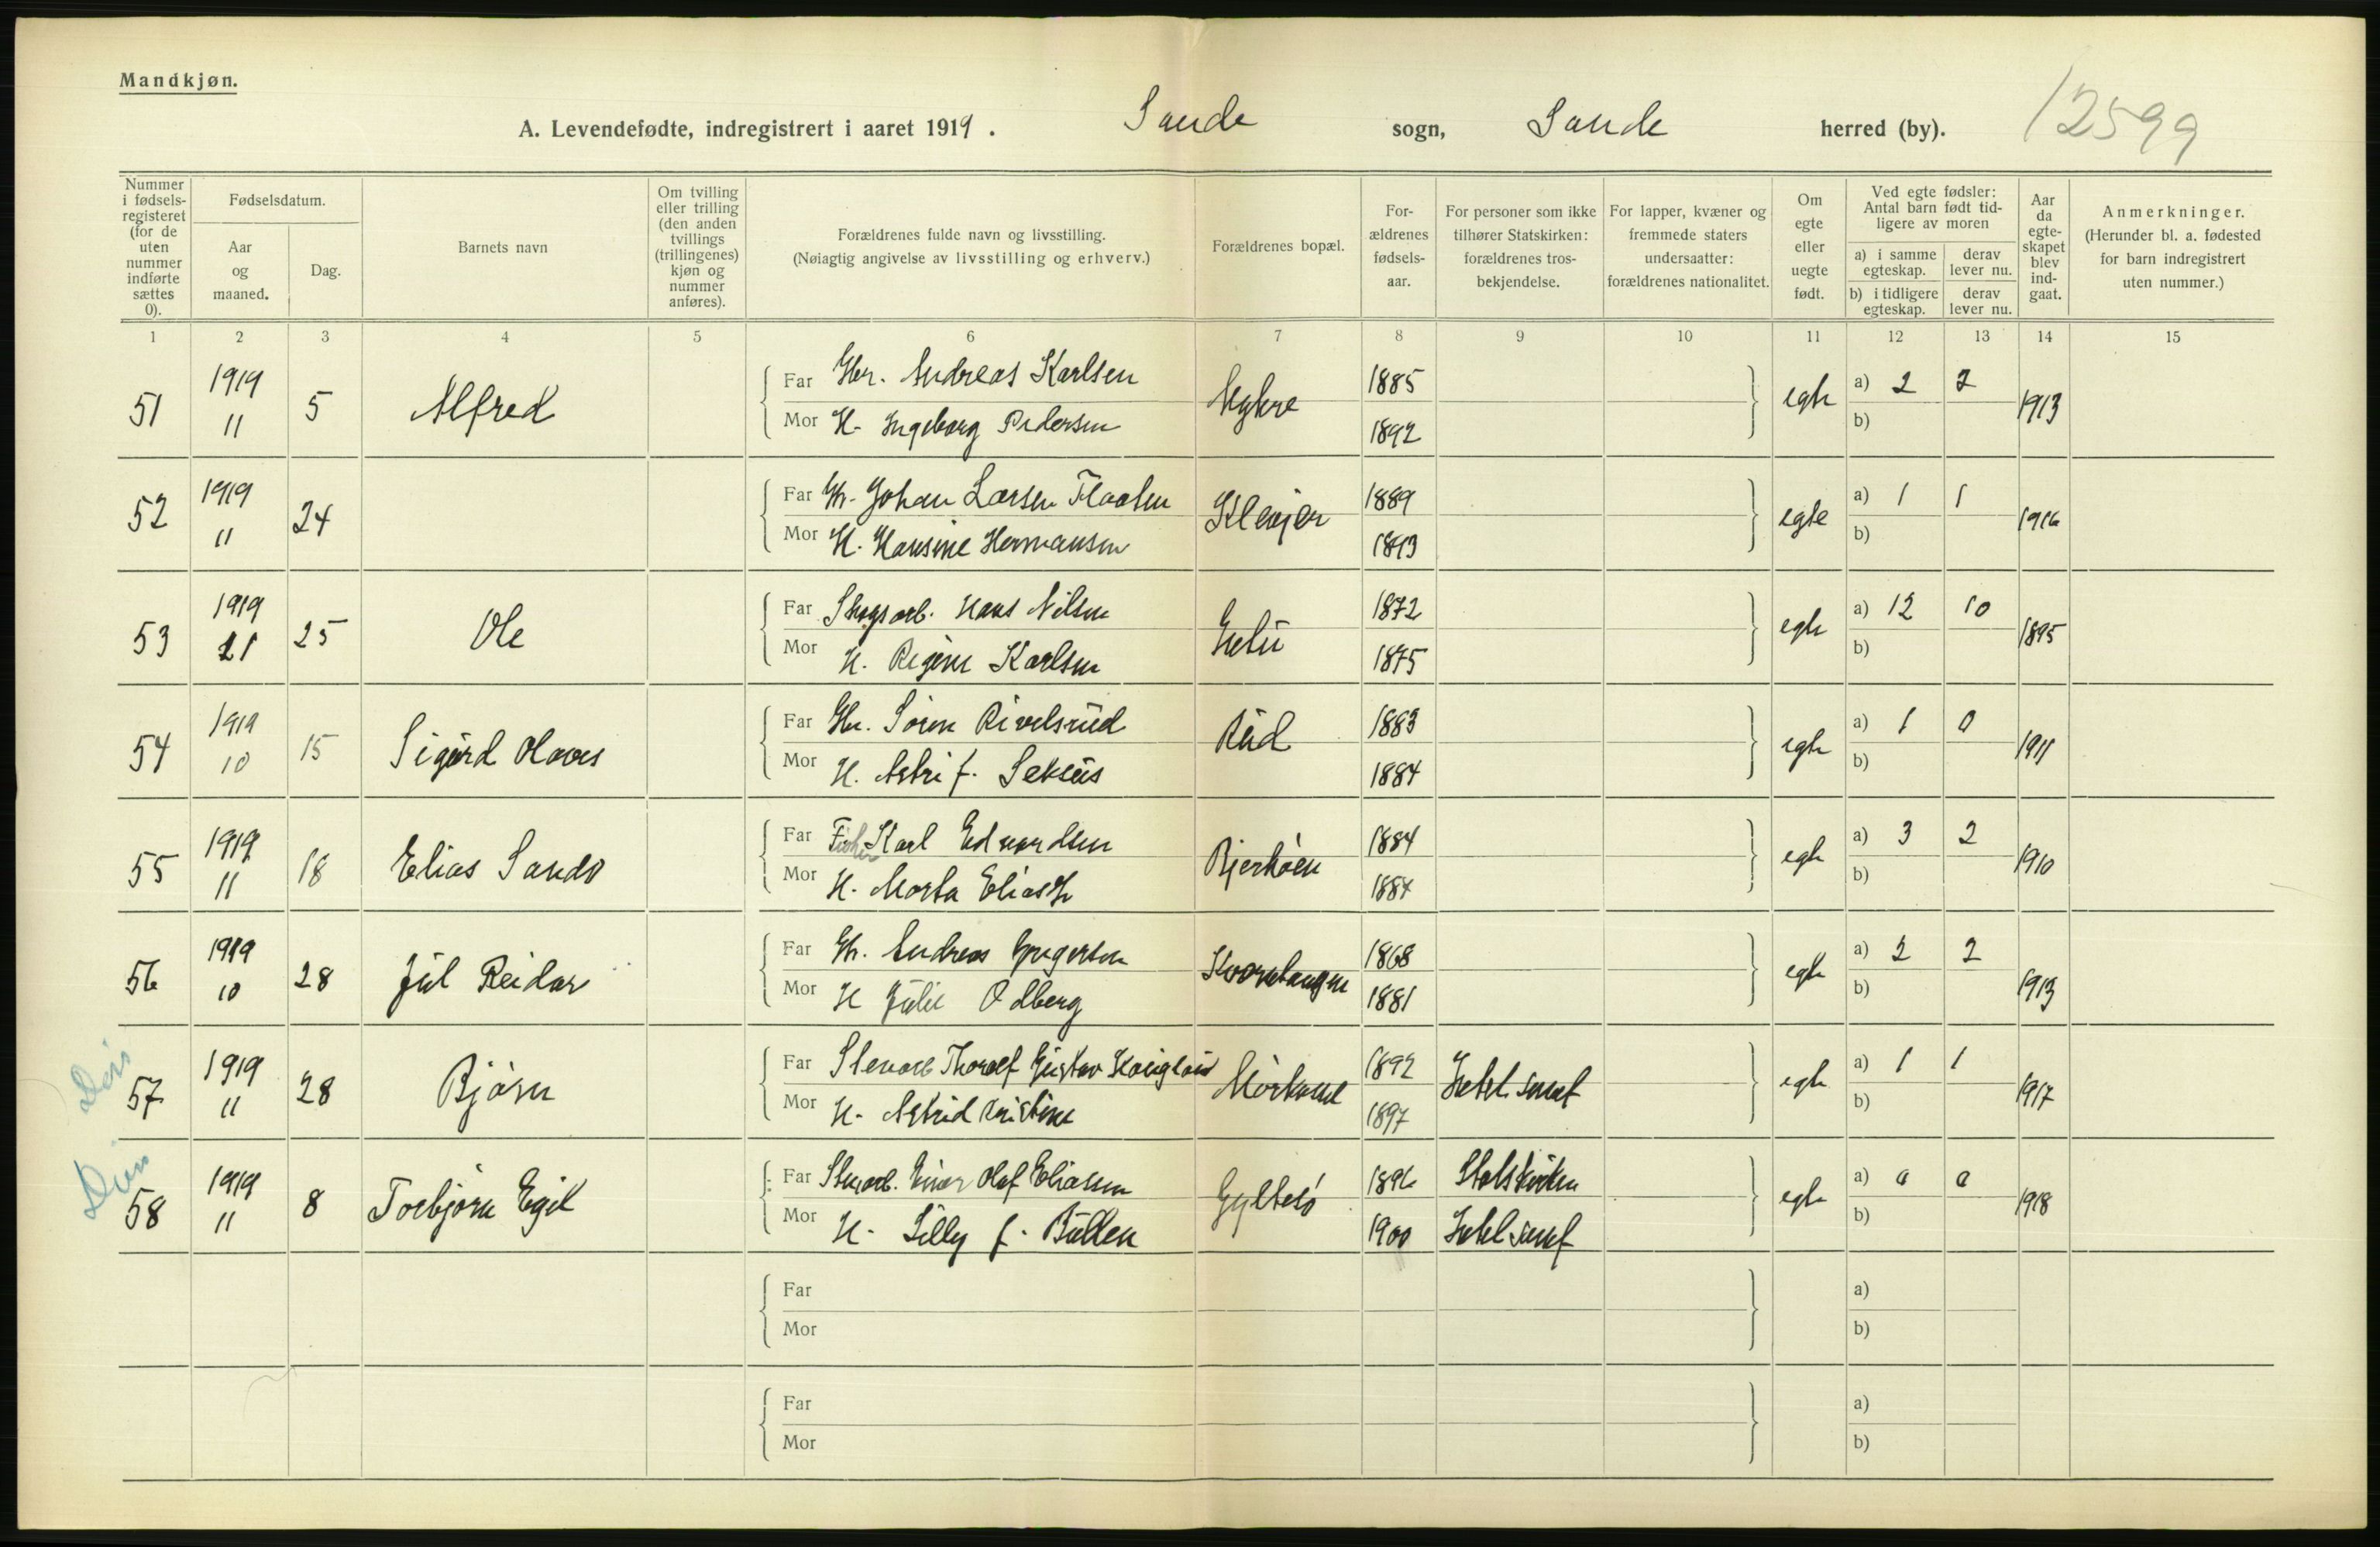 Mandkjøn.
A. Levendefødte, indregistrert i aaret 1919. Sande sogn, Sande herred (by). 12599
Nummer i fødsels-registeret (for de uten nummer indførte sættes 0).
Fødselsdatum.
Aar og maaned.
Dag.
Barnets navn
Om tvilling eller trilling (den anden tvillings (trillingenes) kjøn og nummer anføres).
Forældrenes fulde navn og livsstilling.
(Nøiagtig angivelse av livsstilling og erhverv.)
Forældrenes bopæl.
For-ældrenes fødsels-aar.
For personer som ikke tilhører Statskirken: forældrenes tros-bekjendelse.
For lapper, kvæner og fremmede staters undersaatter: forældrenes nationalitet.
Om egte eller uegte født.
Ved egte fødsler: Antal barn født tid-ligere av moren
a) i samme egteskap.
derav lever nu.
b) i tidligere egteskap.
derav lever nu.
Aar da egte-skapet blev ind-gaat.
Anmerkninger.
(Herunder bl. a. fødested for barn indregistrert uten nummer.)
1 2 3 4 5 6 7 8 9 10 11 12 13 14 15
51 1919 11 5 Alfred
Far Gbr. Andreas Karlsen 1885 egte a) 2 2 1913
Mor H. Ingeborg Pedersen 1892 b)
52 1919 11 24
Far Gbr. Johan Larsen 1889 egte a) 1 1 1916
Mor H. Hansine Hermansen 1893 b)
53 1919 11 25 Ole
Far Skogsarb. Hans Nilsen 1872 egte a) 12 10 1895
Mor H. Regine Karlsen 1875 b)
54 1919 10 15 Sigurd Olaves
Far Gbr. Sören Rivelsrud Rud 1883 egte a) 1 0 1911
Mor H. Astri f. 1884 b)
55 1919 11 18 Elias Sando
Far Fisker Karl Edvardsen Bjerköen 1884 egte a) 3 2 1910
Mor H. Marta 1884 b)
56 1919 10 28 Jul Reidar
Far Gbr. Andreas 1868 egte a) 2 2 1913
Mor H Julie Odberg 1881 b)
57 1919 11 28 Björn
Far Stenarb Thoralf Gustav 1892 egte a) 1 1 1917
Mor H. Astrid Kristine 1897 b)
58 1919 11 8 Torbjörn Egil
Far Stenarb. Einar Olaf Eliassen 1896 Statskirken egte a) 0 0 1918
Mor H. Lilly f. 1900 b)
Far a)
Mor b)
Far a)
Mor b)